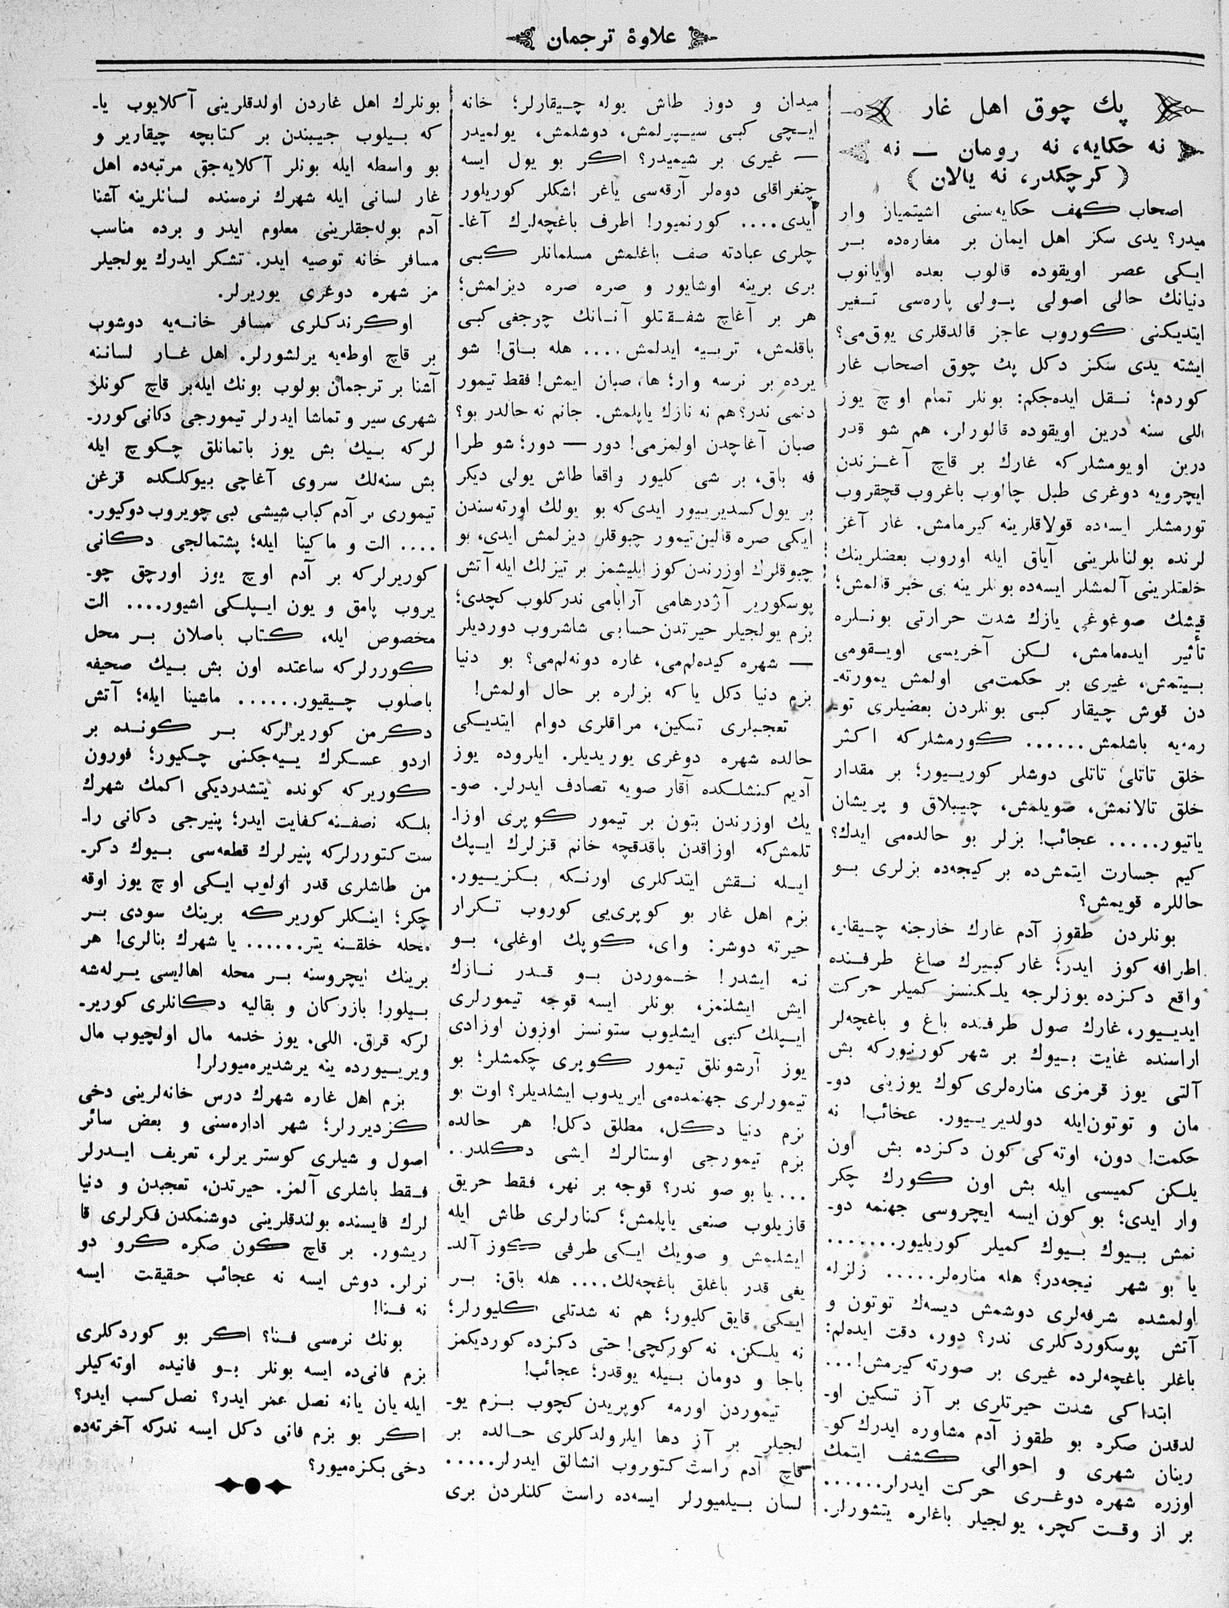 علاوۀ ترجمان
پك چوق اهل غار
نه حکایه، نه رومان — نه
(کرچکدر، نه یالان)
اصحاب کهف حکایه‌سنی اشیتمیاز وار
میدر؟ یدی سکز اهل ایمان بر مغاره‌ده بر
ایکی عصر اویقوده قالوب بعده اویانوب
دنیانك حالی اصولی پولی پاره‌سی تغیر
ایتدیکنی کوروب عاجز قالدقلری یوق‌می؟
ایشته یدی سکز دکل پك چوق اصحاب غار
کوردم؛ نقل ایده‌جکم: بونلر تمام اوچ یوز
اللی سنه درین اویقوده قالورلر، هم شو قدر
درین اویومشلرکه غارك بر قاچ آغزندن
ایچرویه دوغری طبل چالوب باغروب قچقروب
تورمشلر ایسه‌ده قولاقلرینه کیرمامش. غار آغز
لرنده بولنانلرینی آیاق ایله اوروب بعضلرینك
خلعتلرینی آلمشلر ایسه‌ده بونلر ینه بی خبر قالمش؛
قیشك صوغوغی یازك شدت حرارتی بونلره
تأثیر ایده‌مامش، لکن آخریسی اویقومی
بیتمش، غیری بر حکمت‌می اولمش یمورته‌ـ
دن قوش چیقار کبی بونلردن بعضیلری تو‌ـ
رمیه باشلمش...... کورمشلرکه اکثر
خلق تاتلی تاتلی دوشلر کوریور؛ بر مقدار
خلق تالانمش، صویلمش، چیبلاق و پریشان
یاتیور..... عجائب! بزلر بو حالده‌می ایدك؟
کیم جسارت ایتمش‌ده بر کیجه‌ده بزلری بو
حاللره قویمش؟
بونلردن طقوز آدم غارك خارجنه چیقار،
اطرافه کوز ایدر؛ غار کبیرك صاغ طرفنده
واقع دکزده یوزلرجه یلکنسز کمیلر حرکت
ایدییور، غارك صول طرفنده باغ و باغچه‌لر
اراسنده غایت بیوك بر شهر کورنیورکه بش
آلتی یوز قرمزی مناره‌لری کوك یوزینی دو‌ـ
مان و توتون‌ایله دولدیرییور. عجائب! نه
حکمت! دون، اوته‌کی کون دکزده بش اون
یلکن کمیسی ایله بش اون کورك چکر
وار ایدی؛ بو کون ایسه ایچروسی جهنمه دو‌ـ
نمش بیوك بیوك کمیلر کوریلیور.......
یا بو شهر نیجه‌در؟ هله مناره‌لر..... زلزله
اولمشده شرفه‌لری دوشمش دیسه‌ك توتون و
آتش پوسکوردکلری ندر؟ دور، دقت ایده‌لم:
باغلر باغچه‌لرده غیری بر صورته کیرمش!...
ابتداکی شدت حیرتلری بر آز تسکین او‌ـ
لدقدن صکره بو طقوز آدم مشاوره ایدرك کو‌ـ
رینان شهری و احوالی کشف ایتمك
اوزره شهره دوغری حرکت ایدرلر......
بر از وقت کچر، یولجیلر باغلره یتشورلر.
میدان و دوز طاش یوله چیقارلر؛ خانه
ایچی کبی سیپرلمش، دوشلمش، یولمیدر
— غیری بر شیمیدر؟ اکر بو یول ایسه
چنغراقلی دوه‌لر آرقه‌سی یاغر اشکلر کوریلور
ایدی.... کورنمیور! اطرف باغچه‌لرك آغا‌ـ
چلری عبادته صف باغلمش مسلمانلر کبی
بری برینه اوشایور و صره صره دیزلمش؛
هر بر آغاچ شفقتلو آنانك چرجغی کبی
باقلمش، تربیه ایدلمش.... هله باق! شو
یرده بر نرسه وار؛ ها، صبان ایمش! فقط تیمور
دنمی ندر؟ هم نه نازك یاپلمش. جانم نه حالدر بو؟
صبان آغاچدن اولمزمی! دور — دور؛ شو طرا
فه باق، بر شی کلیور واقعا طاش یولی دیکر
بر یول کسدیرییور ایدی‌که بو یولك اورته‌سندن
ایکی صره قالین تیمور چبوقلر دیزلمش ایدی، بو
چبوقلرك اوزرندن کوز ایلیشمز بر تیزلك ایله آتش
پوسکوریر آژدرهامی آرابامی ندر کلوب کچدی؛
بزم یولجیلر حیرتدن حسابی شاشروب دوردیلر
— شهره کیده‌لم‌می، غاره دونه‌لم‌می؟ بو دنیا
بزم دنیا دکل یاکه بزلره بر حال اولمش!
تعجبلری تسکین، مراقلری دوام ایتدیکی
حالده شهره دوغری یوریدیلر. ایلروده یوز
آدیم کنشلکده آقار صویه تصادف ایدرلر. صو‌ـ
یك اوزرندن بتون بر تیمور کوپری اوزا‌ـ
تلمش‌که اوزاقدن باقدقچه خانم قزلرك ایپك
ایله نقش ایتدکلری اورنکه بکزییور.
بزم اهل غار بو کوپری‌یی کوروب تکرار
حیرته دوشر: وای، کوپك اوغلی، بو
نه ایشدر! خموردن بو قدر نازك
ایش ایشلنمز، بونلر ایسه قوجه تیمورلری
ایپلك کبی ایشلیوب ستونسز اوزون اوزادی
یوز آرشونلق تیمور کوپری چکمشلر؛ بو
تیمورلری جهنمده‌می ایریدوب ایشلدیلر؟ اوت بو
بزم دنیا دکل، مطلق دکل! هر حالده
بزم تیمورجی اوستالرك ایشی دکلدر..
... یا بو صو ندر؟ قوجه بر نهر، فقط حریق
قازیلوب صنعی یاپلمش؛ کنارلری طاش ایله
ایشلیمش و صویك ایکی طرفی کوز آلد‌ـ
یغی قدر باغلق باغچه‌لك.... هله باق: بر
ایکی قایق کلیور؛ هم نه شدتلی کلیورلر؛
نه یلکن، نه کورکچی! حتی دکزده کوردیکمز
باجا و دومان بیله یوقدر؛ عجائب!
تیموردن اورمه کوپریدن کچوب بزم یو‌ـ
لجیلر بر آز دها ایلرولدکلری حالده بر
قاچ آدم راست کتوروب انشالق ایدرلر.....
لسان بیلمیورلر ایسه‌ده راست کلنلردن بری
بونلرك اهل غاردن اولدقلرینی آکلایوب یا‌ـ
که بیلوب جیبندن بر کتابچه چیقاریر و
بو واسطه ایله بونلر آکلایه‌جق مرتبه‌ده اهل
غار لسانی ایله شهرك نره‌سنده لسانلرینه آشنا
آدم بوله‌جقلرینی معلوم ایدر و برده مناسب
مسافر خانه توصیه ایدر. تشکر ایدرك یولجیلر
مز شهره دوغری یوریرلر.
اوکرندکلری مسافر خانه‌یه دوشوب
بر قاچ اوطه‌یه یرلشورلر. اهل غار لساننه
آشنا بر ترجمان بولوب بونك ایله‌بر قاچ کونلر
شهری سیر و تماشا ایدرلر تیمورجی دکانی کورر‌ـ
لرکه بیك بش یوز باتمانلق چکوچ ایله
بش سنه‌لك سروی آغاچی بیوکلکده قزغن
تیموری بر آدم کباب شیشی کبی چویروب دوکیور.
.... الت و ماکینا ایله؛ پشتمالجی دکانی
کوریرلرکه بر آدم اوچ یوز اورچق چو‌ـ
یروب پامق و یون ایپلکی اشیور.... الت
مخصوص ایله، کتاب باصلان بر محل
کوررلرکه ساعتده اون بش بیك صحیفه
باصلوب چیقیور...... ماشینا ایله؛ آتش
دکرمن کوریرلرکه بر کونده بر
اردو عسکرك ییه‌جکنی چکیور؛ فورون
کوریرکه کونده یتشدردیکی اکمك شهرك
بلکه نصفنه کفایت ایدر؛ پنیرجی دکانی را‌ـ
ست کتوررلرکه پنیرلرك قطعه‌سی بیوك دکر‌ـ
من طاشلری قدر اولوب ایکی اوچ یوز اوقه
چکر؛ اینکلر کوریرکه برینك سودی بر
محله خلقنه یتر...... یا شهرك بنالری! هر
برینك ایچروسنه بر محله اهالیسی یرله‌شه
بیلور! بازرکان و بقالیه دکانلری کوریر‌ـ
لرکه قرق. اللی. یوز خدمه مال اولچیوب مال
ویرییورده ینه یرشدیره‌میورلر!
بزم اهل غاره شهرك درس خانه‌لرینی دخی
کزدیررلر؛ شهر اداره‌سنی و بعض سائر
اصول و شیلری کوستریرلر، تعریف ایدرلر
فقط باشلری آلمز. حیرتدن، تعجبدن و دنیا
لرك قایسنده بولندقلرینی دوشنمکدن فکرلری قا
ریشور. بر قاچ کون صکره کرو دو
نرلر. دوش ایسه نه عجائب حقیقت ایسه
نه فنا!
بونك نره‌سی فنا؟ اکر بو کوردکلری
بزم فانی‌ده ایسه بونلر بو فانیده اوته‌کیلر
ایله یان یانه نصل عمر ایدر؟ نصل کسب ایدر؟
اکر بو بزم فانی دکل ایسه ندرکه آخرته‌ده
دخی بکزه‌میور؟